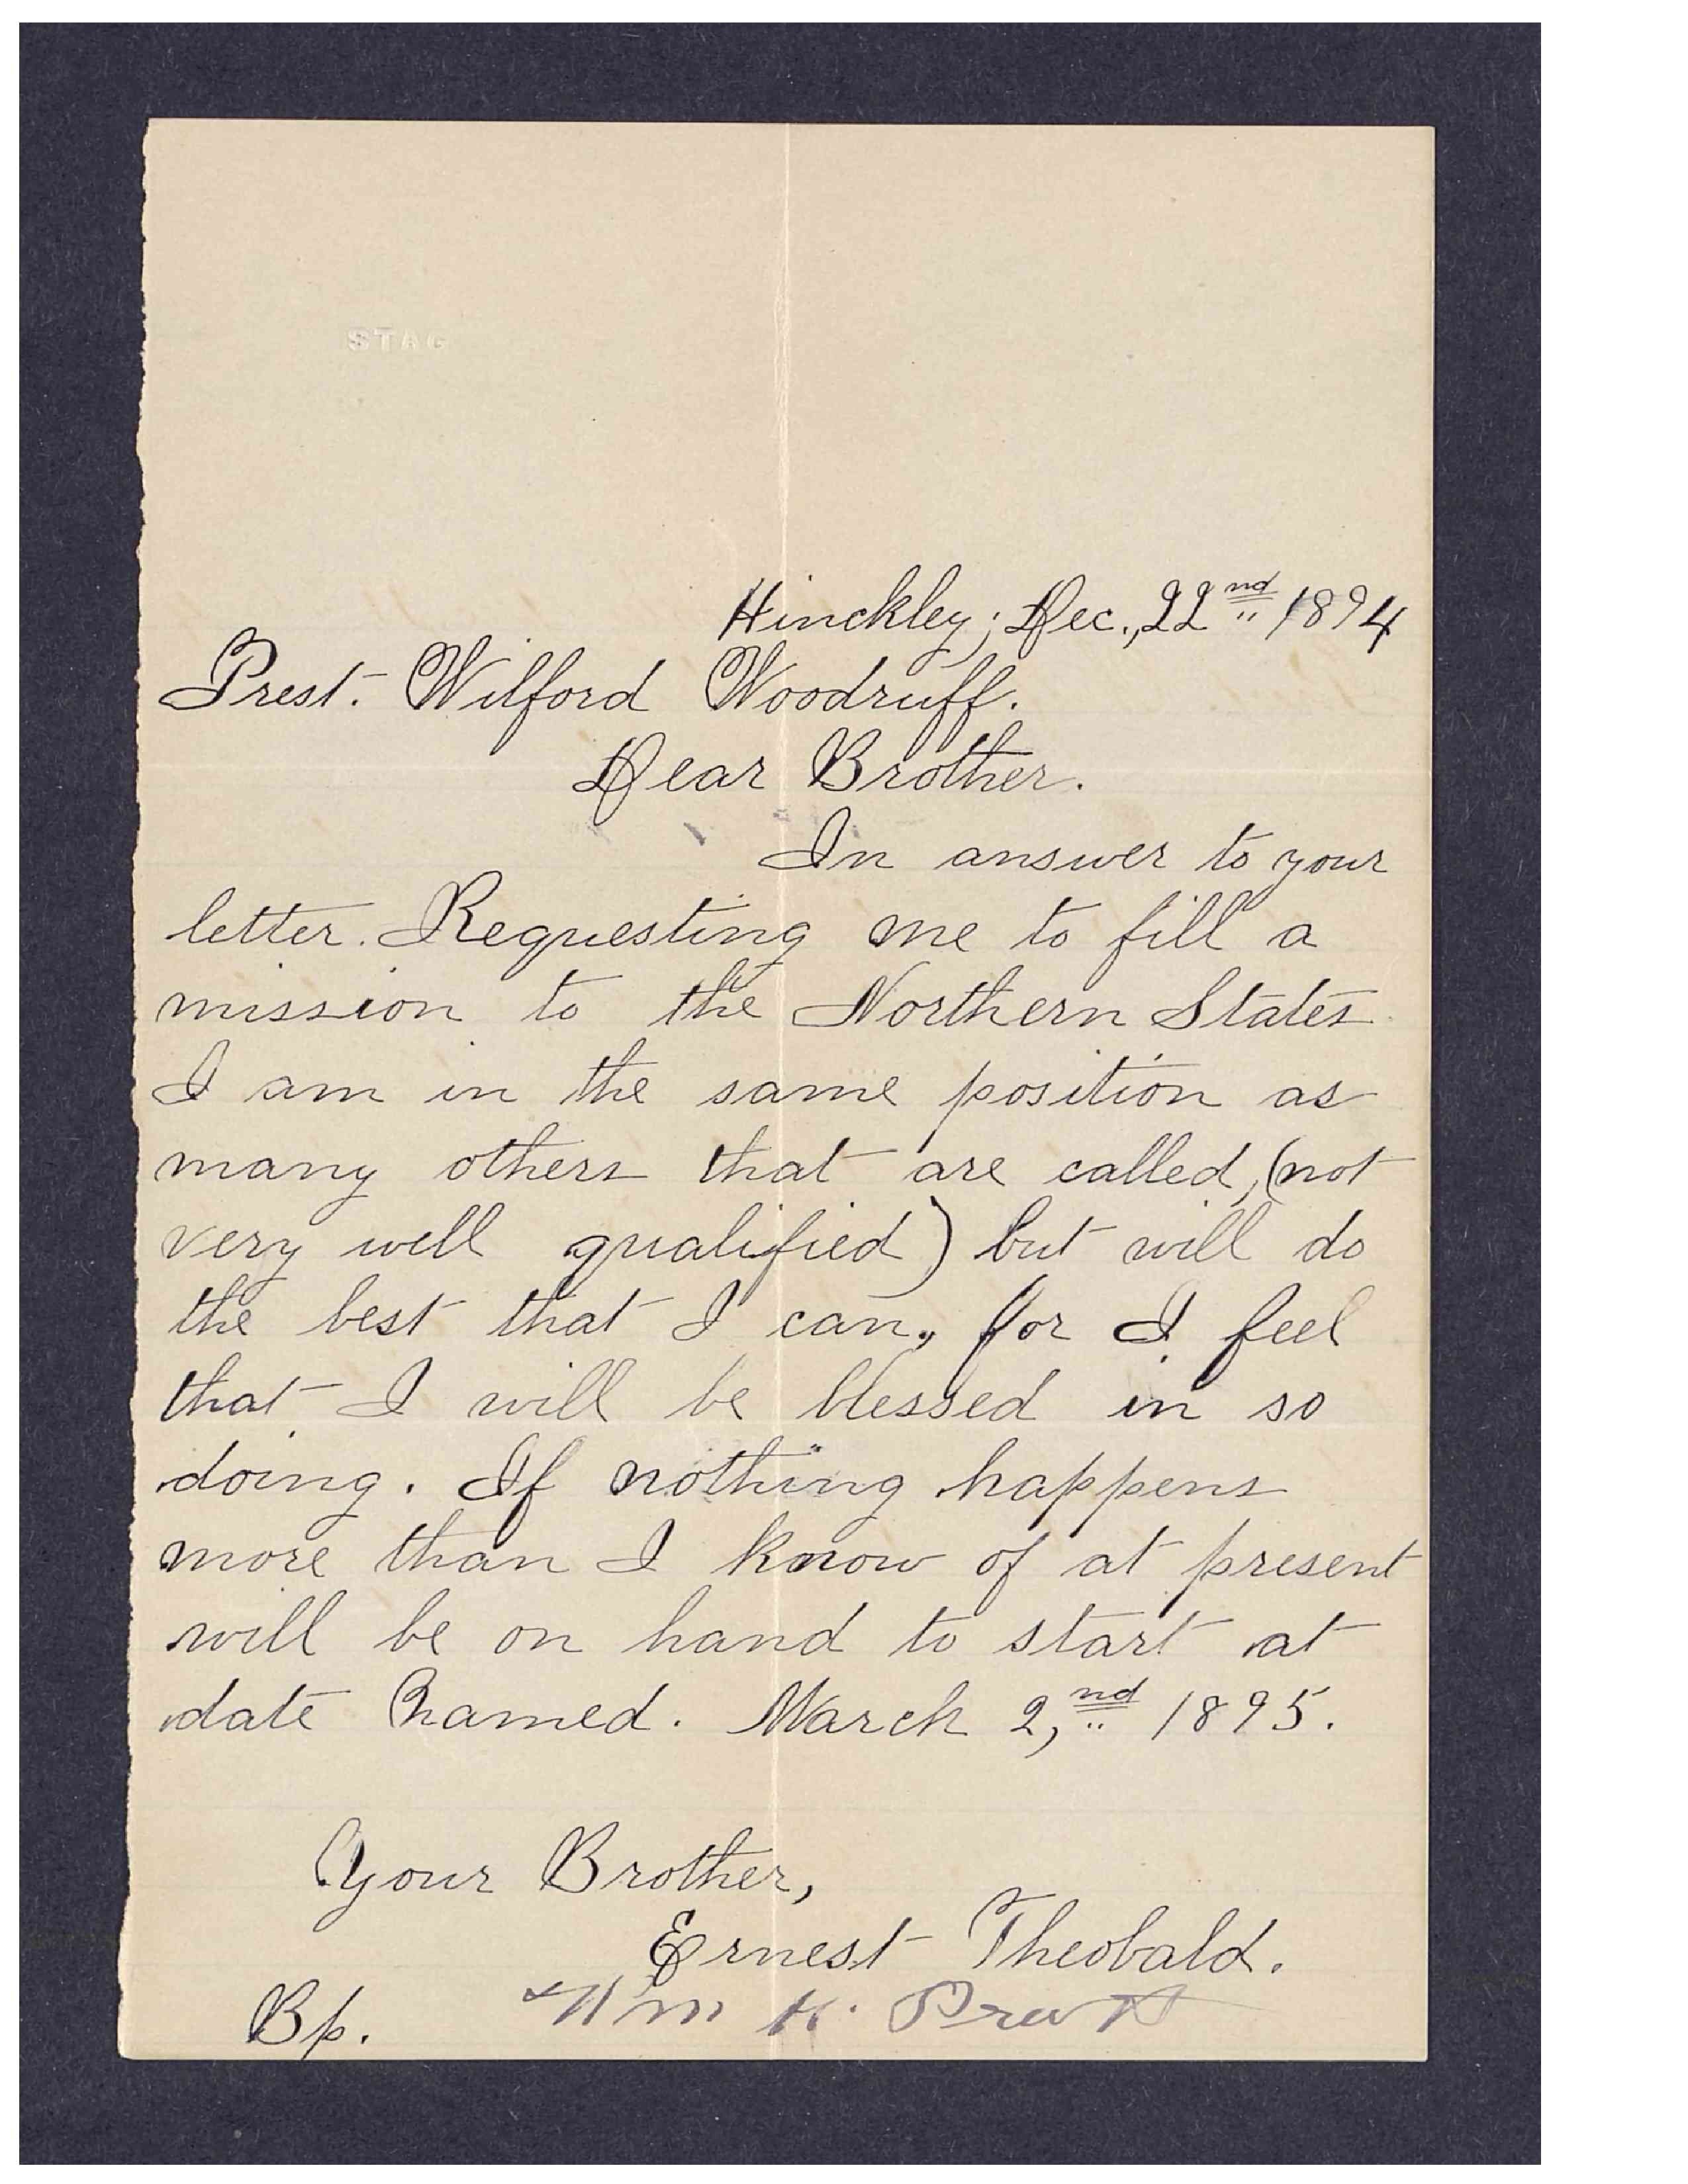 STAG
Hinckley; Dec., 22nd 1894
Prest. Wilford Woodruff.
Dear Brother.
In answer to your
letter. Requesting me to fill a
mission to the Northern States
I am in the same position as
many others that are called, (not
very well qualified) but will do
the best that I can, for I feel
that I will be blessed in so
doing. If nothing happens
more than I know of at present
will be on hand to start at
date named. March 2,nd 1895.
Your Brother,
Ernest Theobald.
Bp. Wm H. Pratt